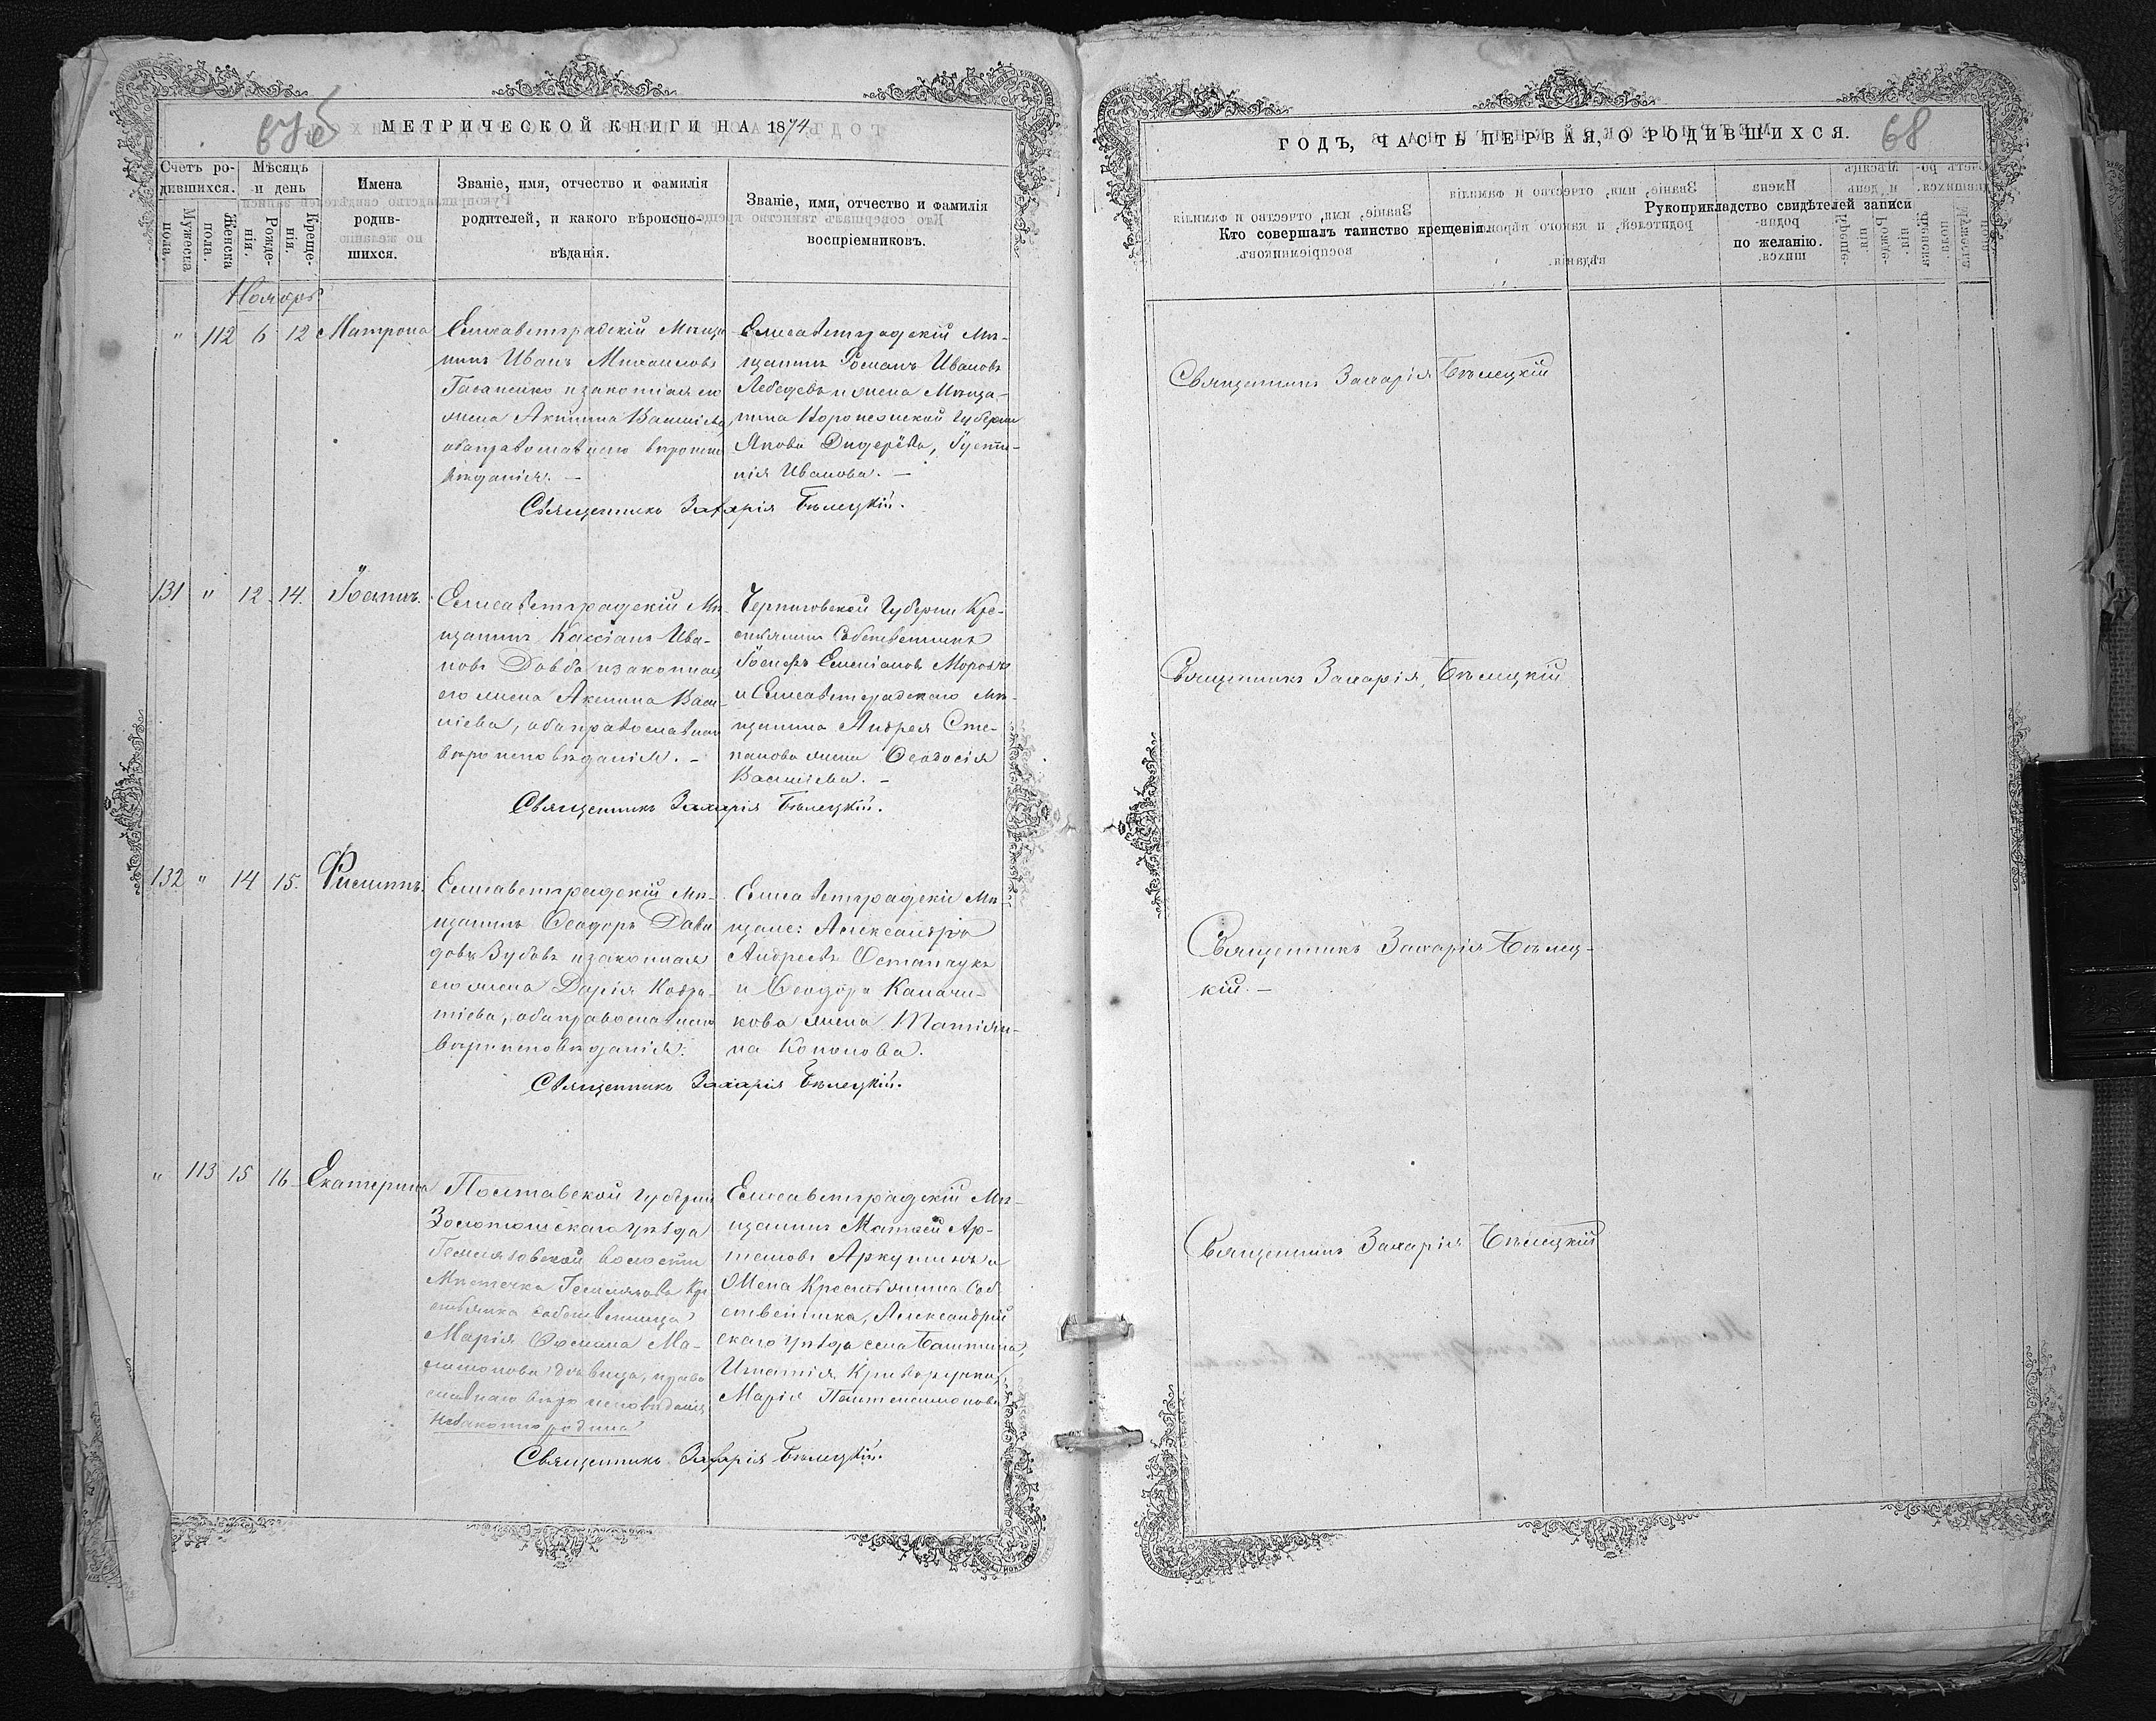 МЕТРИЧЕСКОЙ КНИГИ НА 1874
Счетъ ро-
дившихся.
Мужеска
пола.
Женска
пола.
Мѣсяцъ
и день
Рожде-
нія.
Креще-
нія.
Имена
родив-
шихся.
Званіе, имя, отчество и фамилія
родителей, и какого вѣроиспо-
вѣданія.
Званіе, имя, отчество и фамилія
воспріемниковъ.
Ноябрь
" 112 6 12 Матрона
Елисаветградскій Мѣща
нинъ Иванъ Михаиловъ
и законная его
жена Акилина Василіева,
оба православнаго вѣроиспо
вѣданія. —
Елисаветградскій Мѣ-
щанинъ Романъ Ивановъ
Лебедевъ и жена Мѣща-
нина Воронежской Губерніи
Якова Дидерёва, Іусти-
нія Иванова. —
Священникъ Захарія Бѣлецкій.
131 " 12 14. Іосифъ.
Елисаветградскій Мѣ
щанинъ Кассіанъ Ива-
новъ Довба и законная
его жена Акилина Васи-
ліева, оба православнаго
вѣроисповѣданія. –
Черниговской Губерніи Кре-
стьянинъ Собственникъ
Іосифъ Емеліановъ Морозъ
и Елисаветградскаго Мѣ-
щанина Андрея Сте-
панова жена Ѳеодосія
Василіева. –
Священникъ Захарія Бѣлецкій.
132 " 14 15. Филиппъ.
Елисаветградскій Мѣ-
щанинъ Ѳеодоръ Дави
довъ Зубовъ и законная
его жена Дарія Кодра-
тіева, оба православнаго
вѣроисповѣданія.
Елисаветградскіе Мѣ
щане: Александръ
Андреевъ Остапчукъ
и Ѳеодора Калачи-
кова жена Татіян-
на Кононова.
Священникъ Захарія Бѣлецкій.
" 113 15 16 Екатерина
Полтавской Губерніи
Золотоношскаго уѣзда
Гельмязовской волости
Мѣстечка Гельмязова Кре
стьянка собственница
Марія Ѳомина Ма-
дѣвица, право
славнаго вѣроисповѣданія
Незаконнорождена
Елисаветградскій Мѣ-
щанинъ Матѳей Ар-
темовъ Аркушинъ и
Жена Крестьянина Соб
ственника, Александрій
скаго уѣзда села Баштина,
Игнатія Криворучки,
Марія Пантелимонова.
Священникъ Захарія Бѣлецкій.
ГОДЪ, ЧАСТЬ ПЕРВАЯ, О РОДИВШИХСЯ.
68
Кто совершалъ таинство крещенія.
Рукоприкладство свидѣтелей записи
по желанію.
Священникъ Захарія Бѣлецкій
Священникъ Захарія Бѣлецкій
Священникъ Захарія Бѣлец-
кій. —
Священникъ Захарія Бѣлецкій